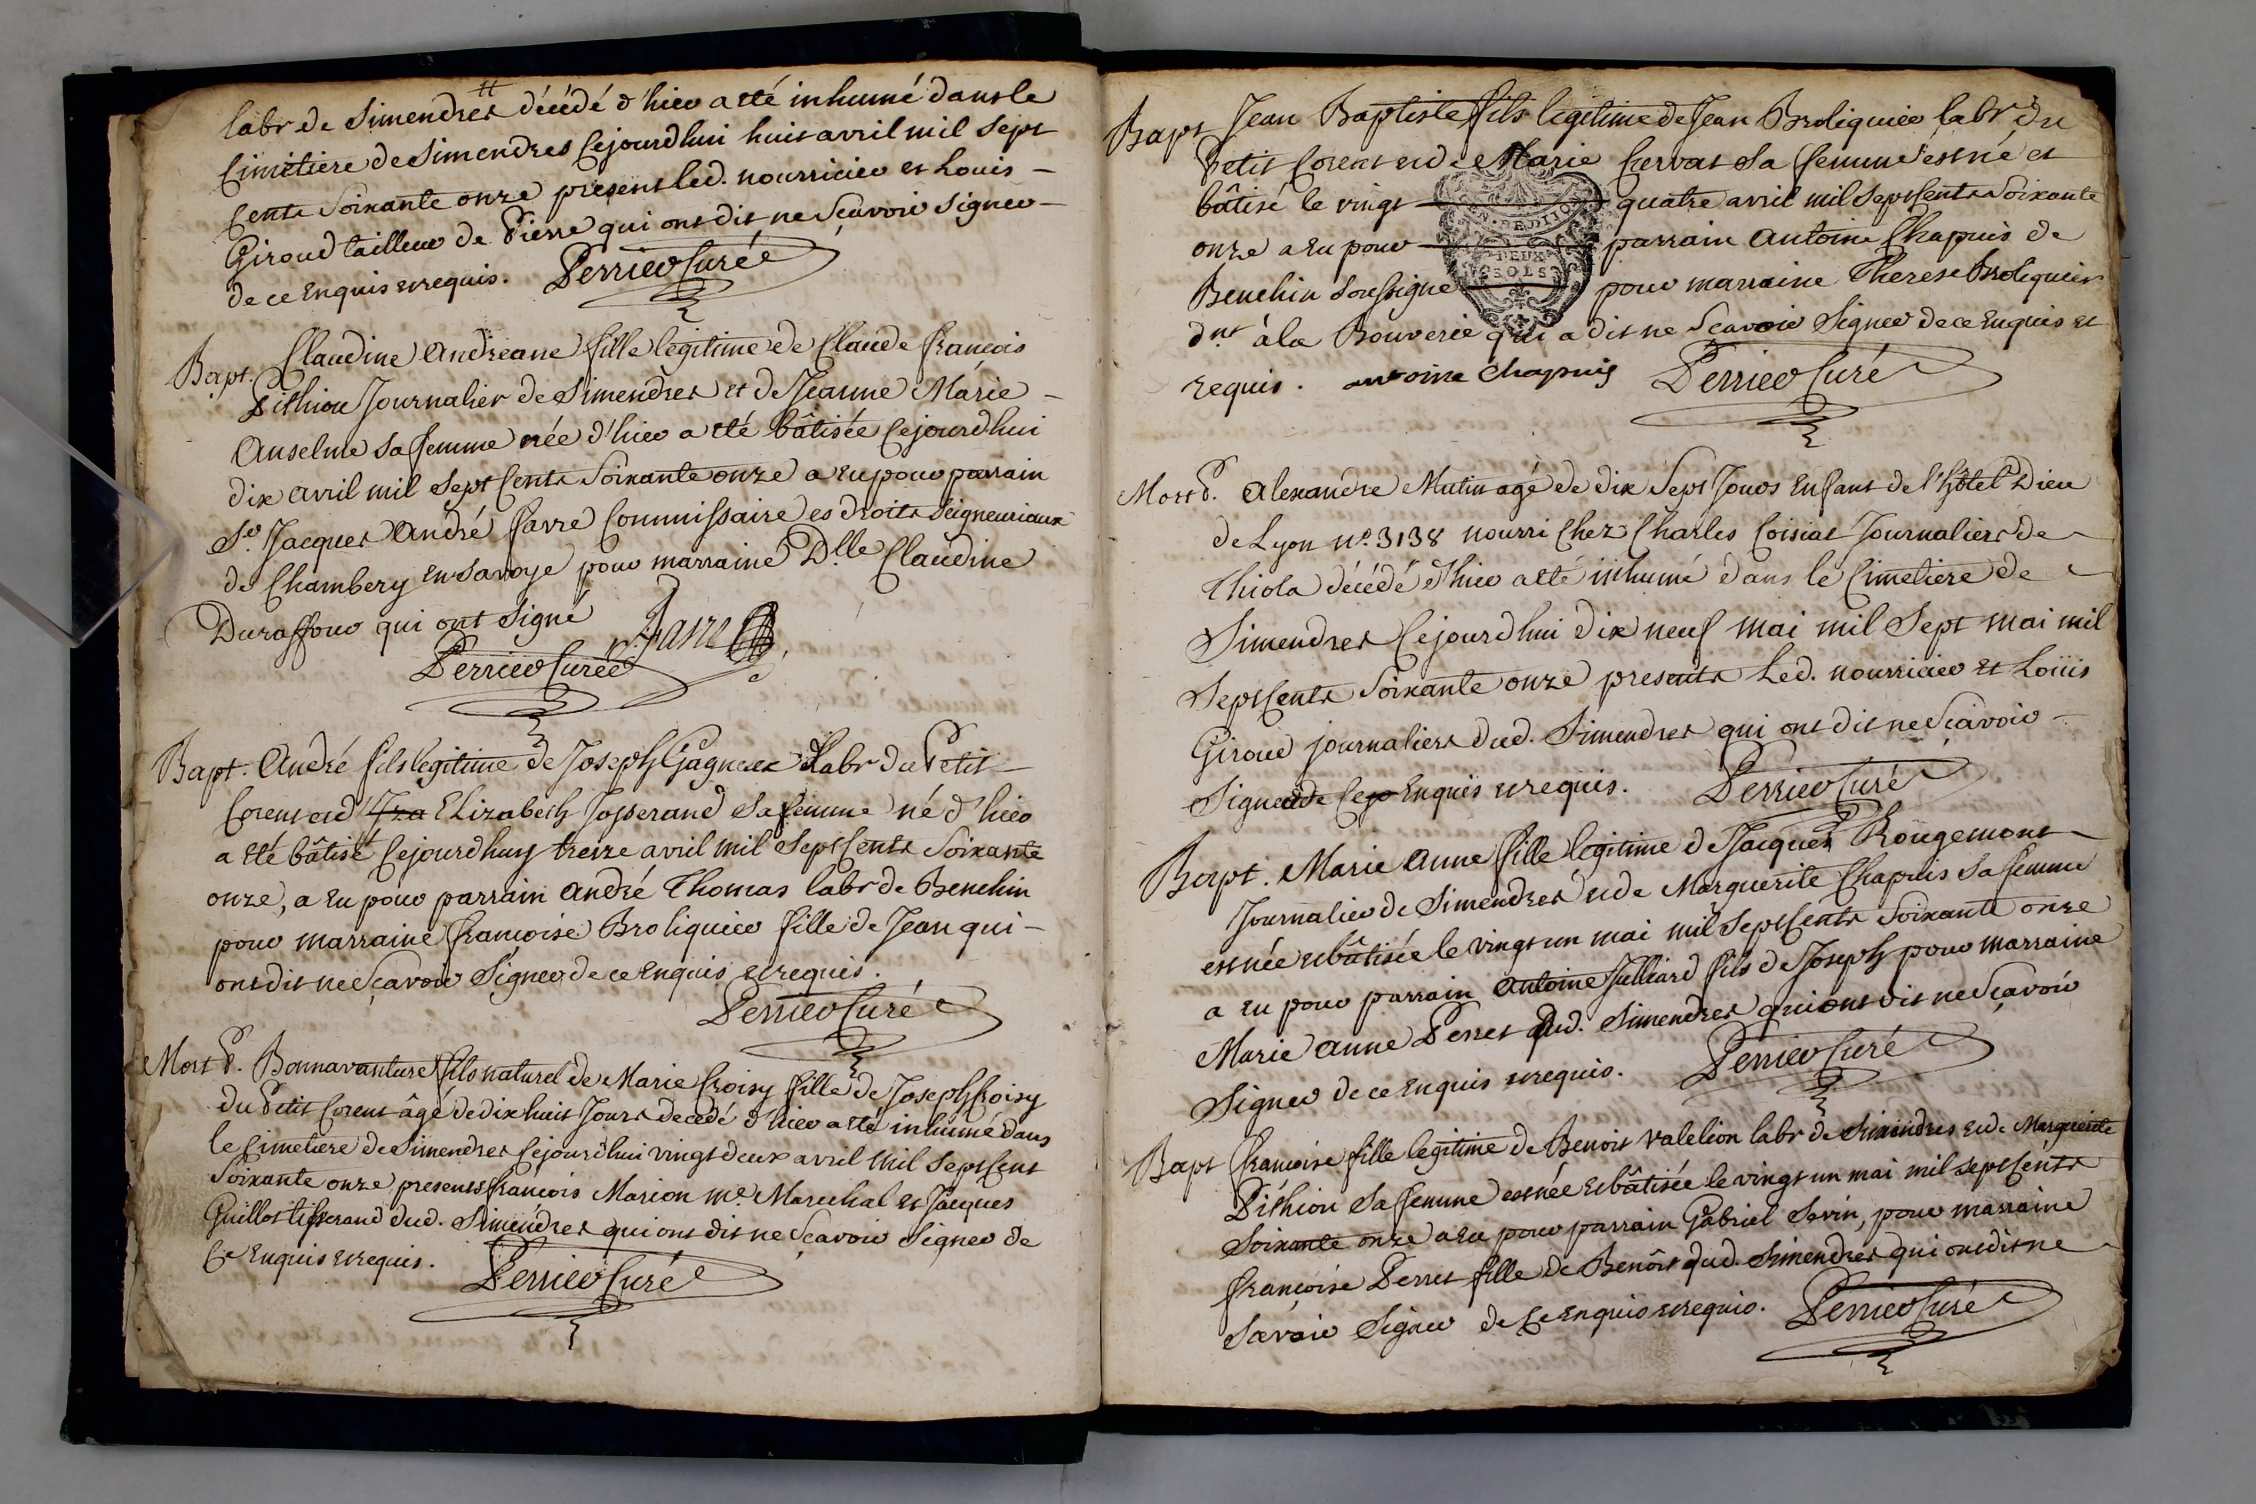 labr de Simendres décédé d'hier a eté inhumé dans le
Cimétiere de Simendres Cejourd'hui huit avril mil Sept
Cents Soixante onze present led. nourricier et Louis
Giroud tailleur de Pierre qui ont dit ne Sçavoir Signer
de ce Enquis et requis. Perrier Curé
Bapt. Claudine Andréane fille légitime de Claude francois
Pithion Journalier de Simendres et de Jeanne Marie
Anselme Sa femme née d'hier a eté bâtisée Cejourdhui
dix avril mil Sept Cents Soixante onze a eu pour parrain
Sr. Jacques André favre Commissaire es droits Seigneuriaux
de Chambery en Savoye pour marraine Dlle Claudine
Duraffour qui ont Signé
Perrier Curé favre
Bapt. André fils légitime de Joseph Gagneux labr du Petit
Corent et d' Elizabeth Josserand Sa femme né d'hier
a été bâtisé Cejourdhuy treize avril mil Sept Cents Soixante
onze, a eu pour parrain André Thomas labr de Benchin
pour marraine françoise Broliquier fille de Jean qui
ont dit ne Sçavoir Signer de ce Enquis et requis.
Perrier Curé
Mort P. Bonnavanture fils naturel de Marie Croisy fille de Joseph Croisy
du Petit Corent âgé de dix huit Jours decédé d'hier a eté inhumé dans
le Cimetiere de Simendres Cejourd'hui vingt deux avril mil Sept Cent
Soixante onze, presents françois Marion me. Marechal et Jacques
Guillot tisserand dud. Simendres qui ont dit ne Sçavoir Signer de
Ce Enquis et requis. Perrier Curé
Bapt Jean Baptiste fils legitime de Jean Broliquier labr du
Petit Corent et de Marie Curvat Sa femme est né et
bâtisé le vingt quatre avril mil Sept Cents Soixante
onze a eu pour parrain Antoine Chapuis de
Benchin Soussigné pour marraine Therese Broliquier
dnt à la Bouverie qui a dit ne Sçavoir Signer de ce Enquis et
requis. antoine Chapuis Perrier Curé
DEUX
SOLS
Mort P. Alexandre Mutin agé de dix Sept Jours Enfant de l'hôtel Dieu
de Lyon no. 3138 nourri Chez Charles Coisiat Journalier de
Thiola décédé d'hier a eté inhumé dans le Cimetiere de
Simendres Cejourdhui dix neuf mai mil Sept mai mil
Sept Cents Soixante onze presents Led. nourricier et Louis
Giroud journaliers dud. Simendres qui ont dit ne Sçavoir
Signer de Ce Enquis et requis. Perrier Curé
Bapt. Marie Anne fille legitime de Jacques Rougemont
Journalier de Simendres et de Marguerite Chapuis Sa femme
est née et bâtisée le vingt un mai mil Sept Cents Soixante onze
a eu pour parrain Antoine Julliard fils de Joseph pour marraine
Marie Anne Perret dud. Simendres qui ont dit ne Sçavoir
Signer de ce Enquis et requis. Perrier Curé
Bapt françoise fille legitime de Benoit valelion labr de Simendres et de Marguerite
Pithion Sa femme est née et bâtisée le vingt un mai mil Sept Cents
Soixante onze a eu pour parrain Gabriel Savin, pour marraine
françoise Perret fille de Benôit dud. Simendres qui ont dit ne
Sçavoir Signer de Ce Enquis et requis. Perrier Curé